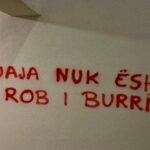 UAJA NUK ËSH
ROB I BURR